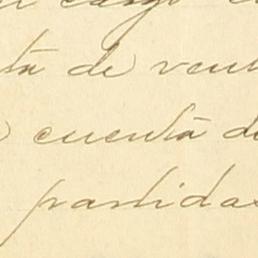 cargo
ta de vent
cuenta de
partidas